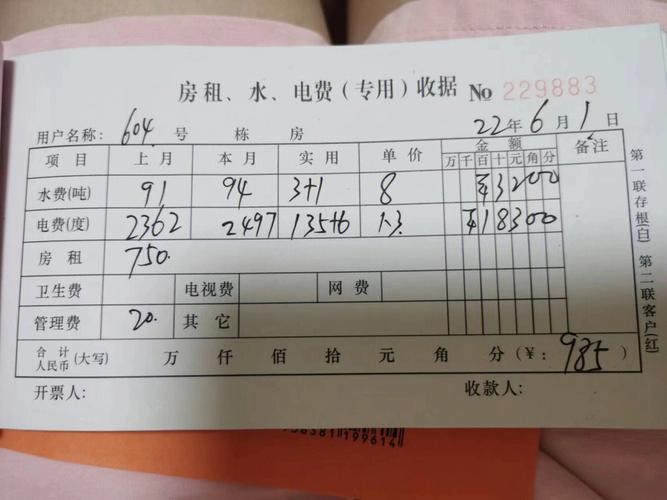 房租、水、电费（专用）收据 No 229883
用户名称：604 号 栋 房 22年6月1日
项目 上月 本月 实用 单价 金额 备注
万 千 百 十 元 角 分
水费(吨) 91 94 3+1 8 ¥3200
电费(度) 2362 2497 135+6 1.3 ¥18300
房租 750.
卫生费 电视费 网费
管理费 20. 其它
合计人民币(大写) 万 仟 佰 拾 元 角 分(¥: 985)
开票人： 收款人：
第一联存根(白) 第二联客户(红)